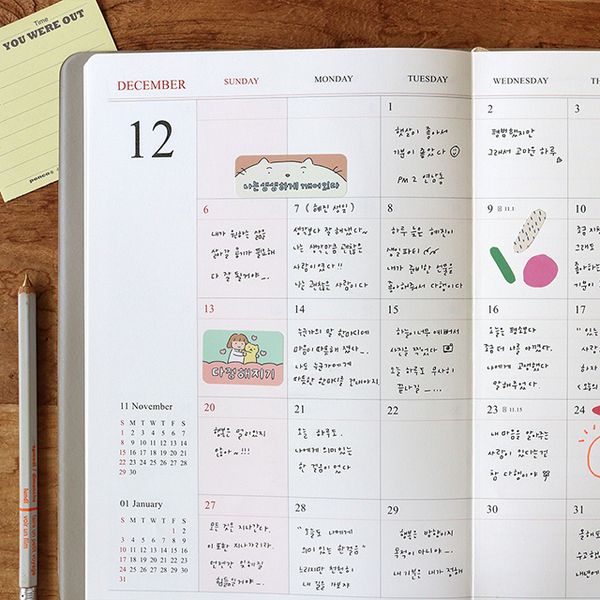 Time
YOU WERE OUT
penco
DECEMBER
SUNDAY
MONDAY
TUESDAY
WEDNESDAY
TH
12
나는 생생하게 깨어있다
1
햇살이 좋아서
기분이 좋았다
PM 2 연남동
2
평범했지만
그래서 고마운 하루
3
6
내가 원하는 삶을
살아갈 용기가 필요해
다 잘 될거야
7 (혜진 생일)
생각보다 잘 해냈다~
나는 생각만큼 괜찮은
사람이 였다!!
나는 괜찮은 사람이다
8
하루 늦은 혜진이
생일파티
내가 준비한 선물을
좋아해줘서 다행이다
9 음 11.1
10
13
다정해지기
14
누군가의 말 한마디에
마음이 따뜻해 졌다
나도 누군가에게
따뜻한 한마디를 건네야지
15
하늘이 너무 예뻐서
사진을 찍었다
오늘 하루도 무사히
끝나길
16
오늘은 평소보다
조금 더 나를 아꼈다.
나에게 고생했다
말해주었다
17
20
행복은 멀리있지
않아~!!!
21
오늘 하루도.
나에게 의미있는
한 걸음이 였다
22
23 음 11.15
내 마음을 알아주는
사람이 있다는건
참 다행이야
24
27
모든 것은 지나간다.
이 또한 지나가리라.
언젠간 잊혀질
힘들일거야
28
"오늘도 나에게
의미 있는 한걸음"
느리지만 천천히
내 길을 가보자
29
행복은 방향이지
목적이 아니야
내 기분은 내가 정해
30
31
11 November
S M T W T F S
1 2 3 4 5 6 7
8 9 10 11 12 13 14
15 16 17 18 19 20 21
22 23 24 25 26 27 28
29 30
01 January
S M T W T F S
1 2
3 4 5 6 7 8 9
10 11 12 13 14 15 16
17 18 19 20 21 22 23
24 25 26 27 28 29 30
31